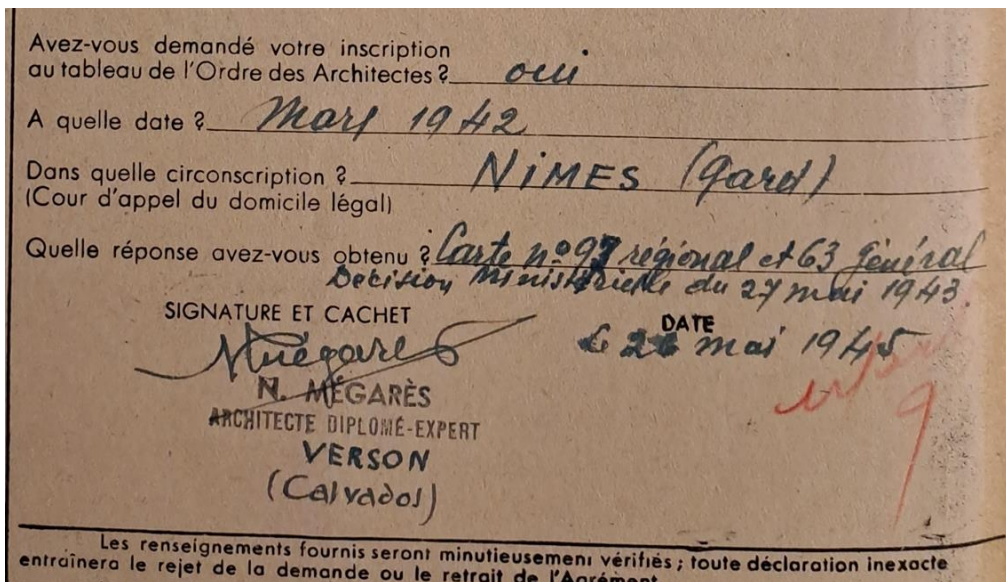 Avez-vous demandé votre inscription
au tableau de l'Ordre des Architectes ? oui
A quelle date ? Mars 1942
Dans quelle circonscription ? NiMES (Gard)
(Cour d'appel du domicile légal)
Quelle réponse avez-vous obtenu ? Carte nº 97 régional et 63 général
Décision Ministérielle du 27 mai 1943.
SIGNATURE ET CACHET
DATE
le 26 mai 1945
N. MÉGARÈS
ARCHITECTE DIPLOMÉ-EXPERT
VERSON
(Calvados)
Les renseignements fournis seront minutieusement vérifiés ; toute déclaration inexacte
entraînera le rejet de la demande ou le retrait de l'Agrément